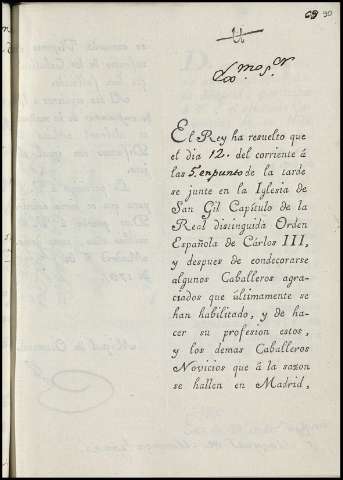 69 90
Exmo. Sor.
El Rey ha resuelto que
el dia 12. del corriente á
las 5. en punto de la tarde
se junte en la Iglesia de
San Gil Capítulo de la
Real distinguida Orden
Española de Cárlos III,
y despues de condecorarse
algunos Caballeros agra-
ciados que últimamente se
han habilitado, y de ha-
cer su profesion estos,
y los demas Caballeros
Novicios que á la sazon
se hallen en Madrid,